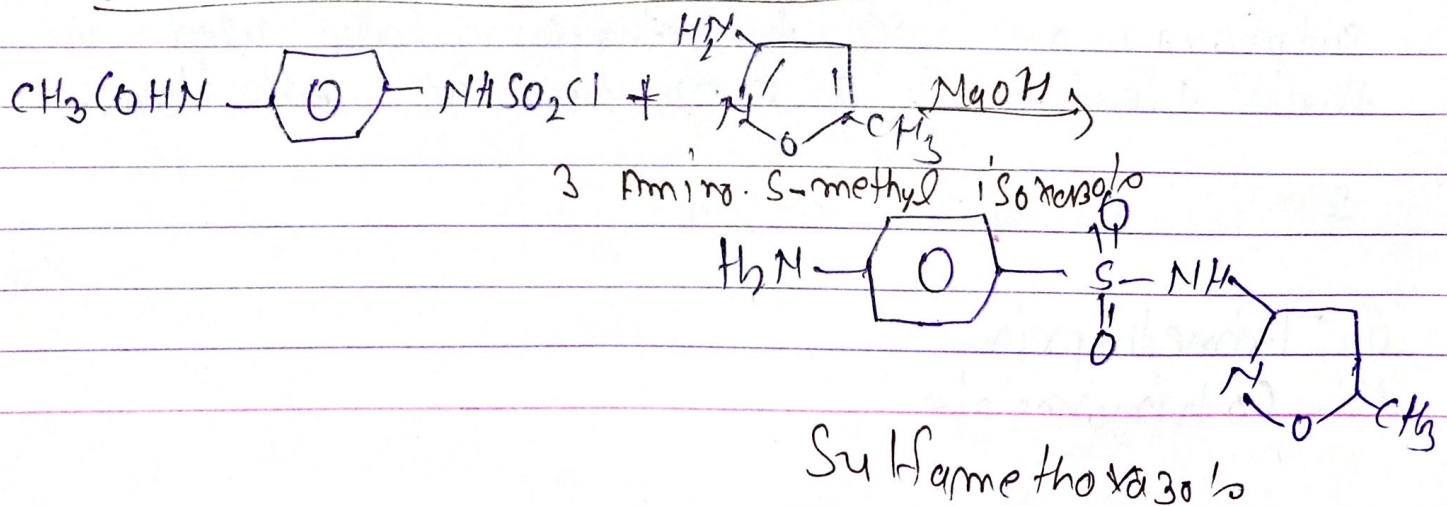 CH3COHN NHSO2Cl + H2N N O CH3 NaOH
3 Amino. 5-methyl isoxazole
H2N O S O NH N O CH3
Sulfamethoxazole